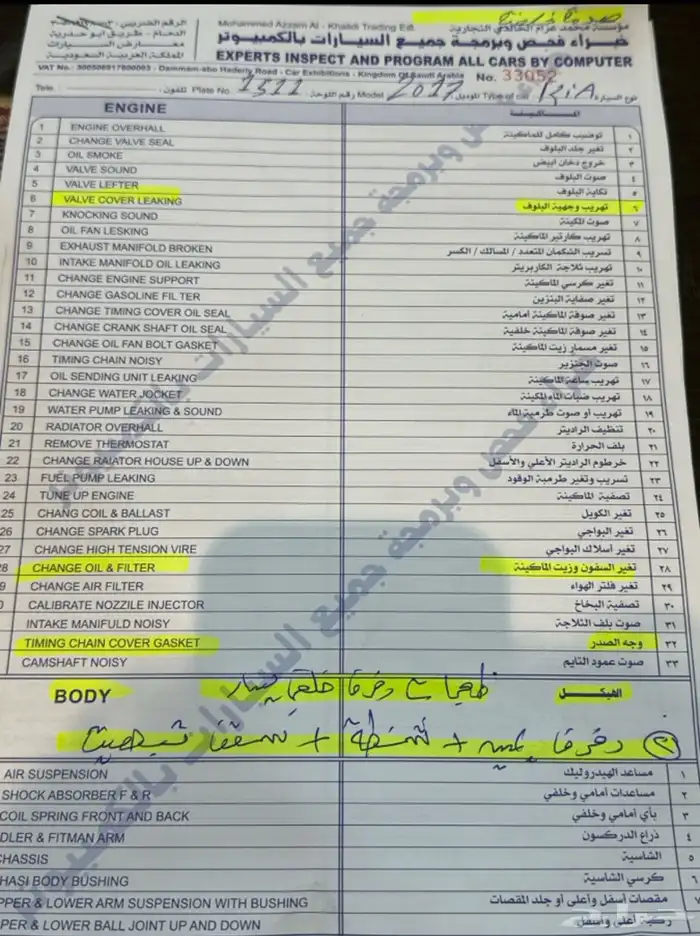 مؤسسة محمد عزام الخالدي التجارية
Mohammed Azzam Al - Khalidi Trading Est.
الدمام - طريق أبو حدرية
معارض السيارات
المملكة العربية السعودية
خبراء فحص وبرمجة جميع السيارات بالكمبيوتر
EXPERTS INSPECT AND PROGRAM ALL CARS BY COMPUTER
Dammam-abo Hadariy Road - Car Exhibitions - Kingdom Of Saudi Arabia
No. 33052
نوع السيارة KiA Type of car الموديل 2017 Model رقم اللوحة 1311 Plate No. تلفون Tele
ENGINE الماكينة
1 ENGINE OVERHALL توضيب كامل للماكينة ١
2 CHANGE VALVE SEAL تغير جلد البلوف ٢
3 OIL SMOKE خروج دخان ابيض ٣
4 VALVE SOUND صوت البلوف ٤
5 VALVE LEFTER تكاية البلوف ٥
6 VALVE COVER LEAKING تهريب وجهية البلوف ٦
7 KNOCKING SOUND صوت المكينة ٧
8 OIL FAN LESKING تهريب كارتير الماكينة ٨
9 EXHAUST MANIFOLD BROKEN تسريب الشكمان المتعدد / المسالك / الكسر ٩
10 INTAKE MANIFOLD OIL LEAKING تهريب ثلاجة الكاربريتر ١٠
11 CHANGE ENGINE SUPPORT تغير كرسي الماكينة ١١
12 CHANGE GASOLINE FILTER تغير صفاية البنزين ١٢
13 CHANGE TIMING COVER OIL SEAL تغير صوفة الماكينة امامية ١٣
14 CHANGE CRANK SHAFT OIL SEAL تغير صوفة الماكينة خلفية ١٤
15 CHANGE OIL FAN BOLT GASKET تغير مسمار زيت الماكينة ١٥
16 TIMING CHAIN NOISY صوت الجنزير ١٦
17 OIL SENDING UNIT LEAKING تهريب ساعة الماكينة ١٧
18 CHANGE WATER JOCKET تهريب ضبات الماء المكينة ١٨
19 WATER PUMP LEAKING & SOUND تهريب أو صوت طرمبة الماء ١٩
20 RADIATOR OVERHALL تنظيف الراديتر ٢٠
21 REMOVE THERMOSTAT بلف الحرارة ٢١
22 CHANGE RAIATOR HOUSE UP & DOWN خرطوم الراديتر الأعلي والأسفل ٢٢
23 FUEL PUMP LEAKING تسريب وتغير طرمبة الوقود ٢٣
24 TUNE UP ENGINE تصفية الماكينة ٢٤
25 CHANG COIL & BALLAST تغير الكويل ٢٥
26 CHANGE SPARK PLUG تغير البواجي ٢٦
27 CHANGE HIGH TENSION VIRE تغير أسلاك البواجي ٢٧
8 CHANGE OIL & FILTER تغير السفون وزيت الماكينة ٢٨
9 CHANGE AIR FILTER تغير فلتر الهواء ٢٩
CALIBRATE NOZZILE INJECTOR تصفية البخاخ ٣٠
INTAKE MANIFULD NOISY صوت بلف الثلاجة ٣١
TIMING CHAIN COVER GASKET وجه الصدر ٣٢
CAMSHAFT NOISY صوت عمود التايم ٣٣
BODY الهيكل
AIR SUSPENSION مساعد الهيدروليك ١
SHOCK ABSORBER F & R مساعدات أمامي وخلفي ٢
COIL SPRING FRONT AND BACK بأي أمامي وخلفي ٣
DLER & FITMAN ARM ذراع الدركسون ٤
CHASSIS الشاسية ٥
HASI BODY BUSHING كرسي الشاسية ٦
PPER & LOWER ARM SUSPENSION WITH BUSHING مقصات أسفل وأعلى أو جلد المقصات ٧
PER & LOWER BALL JOINT UP AND DOWN ركبة أعلى وأسفل